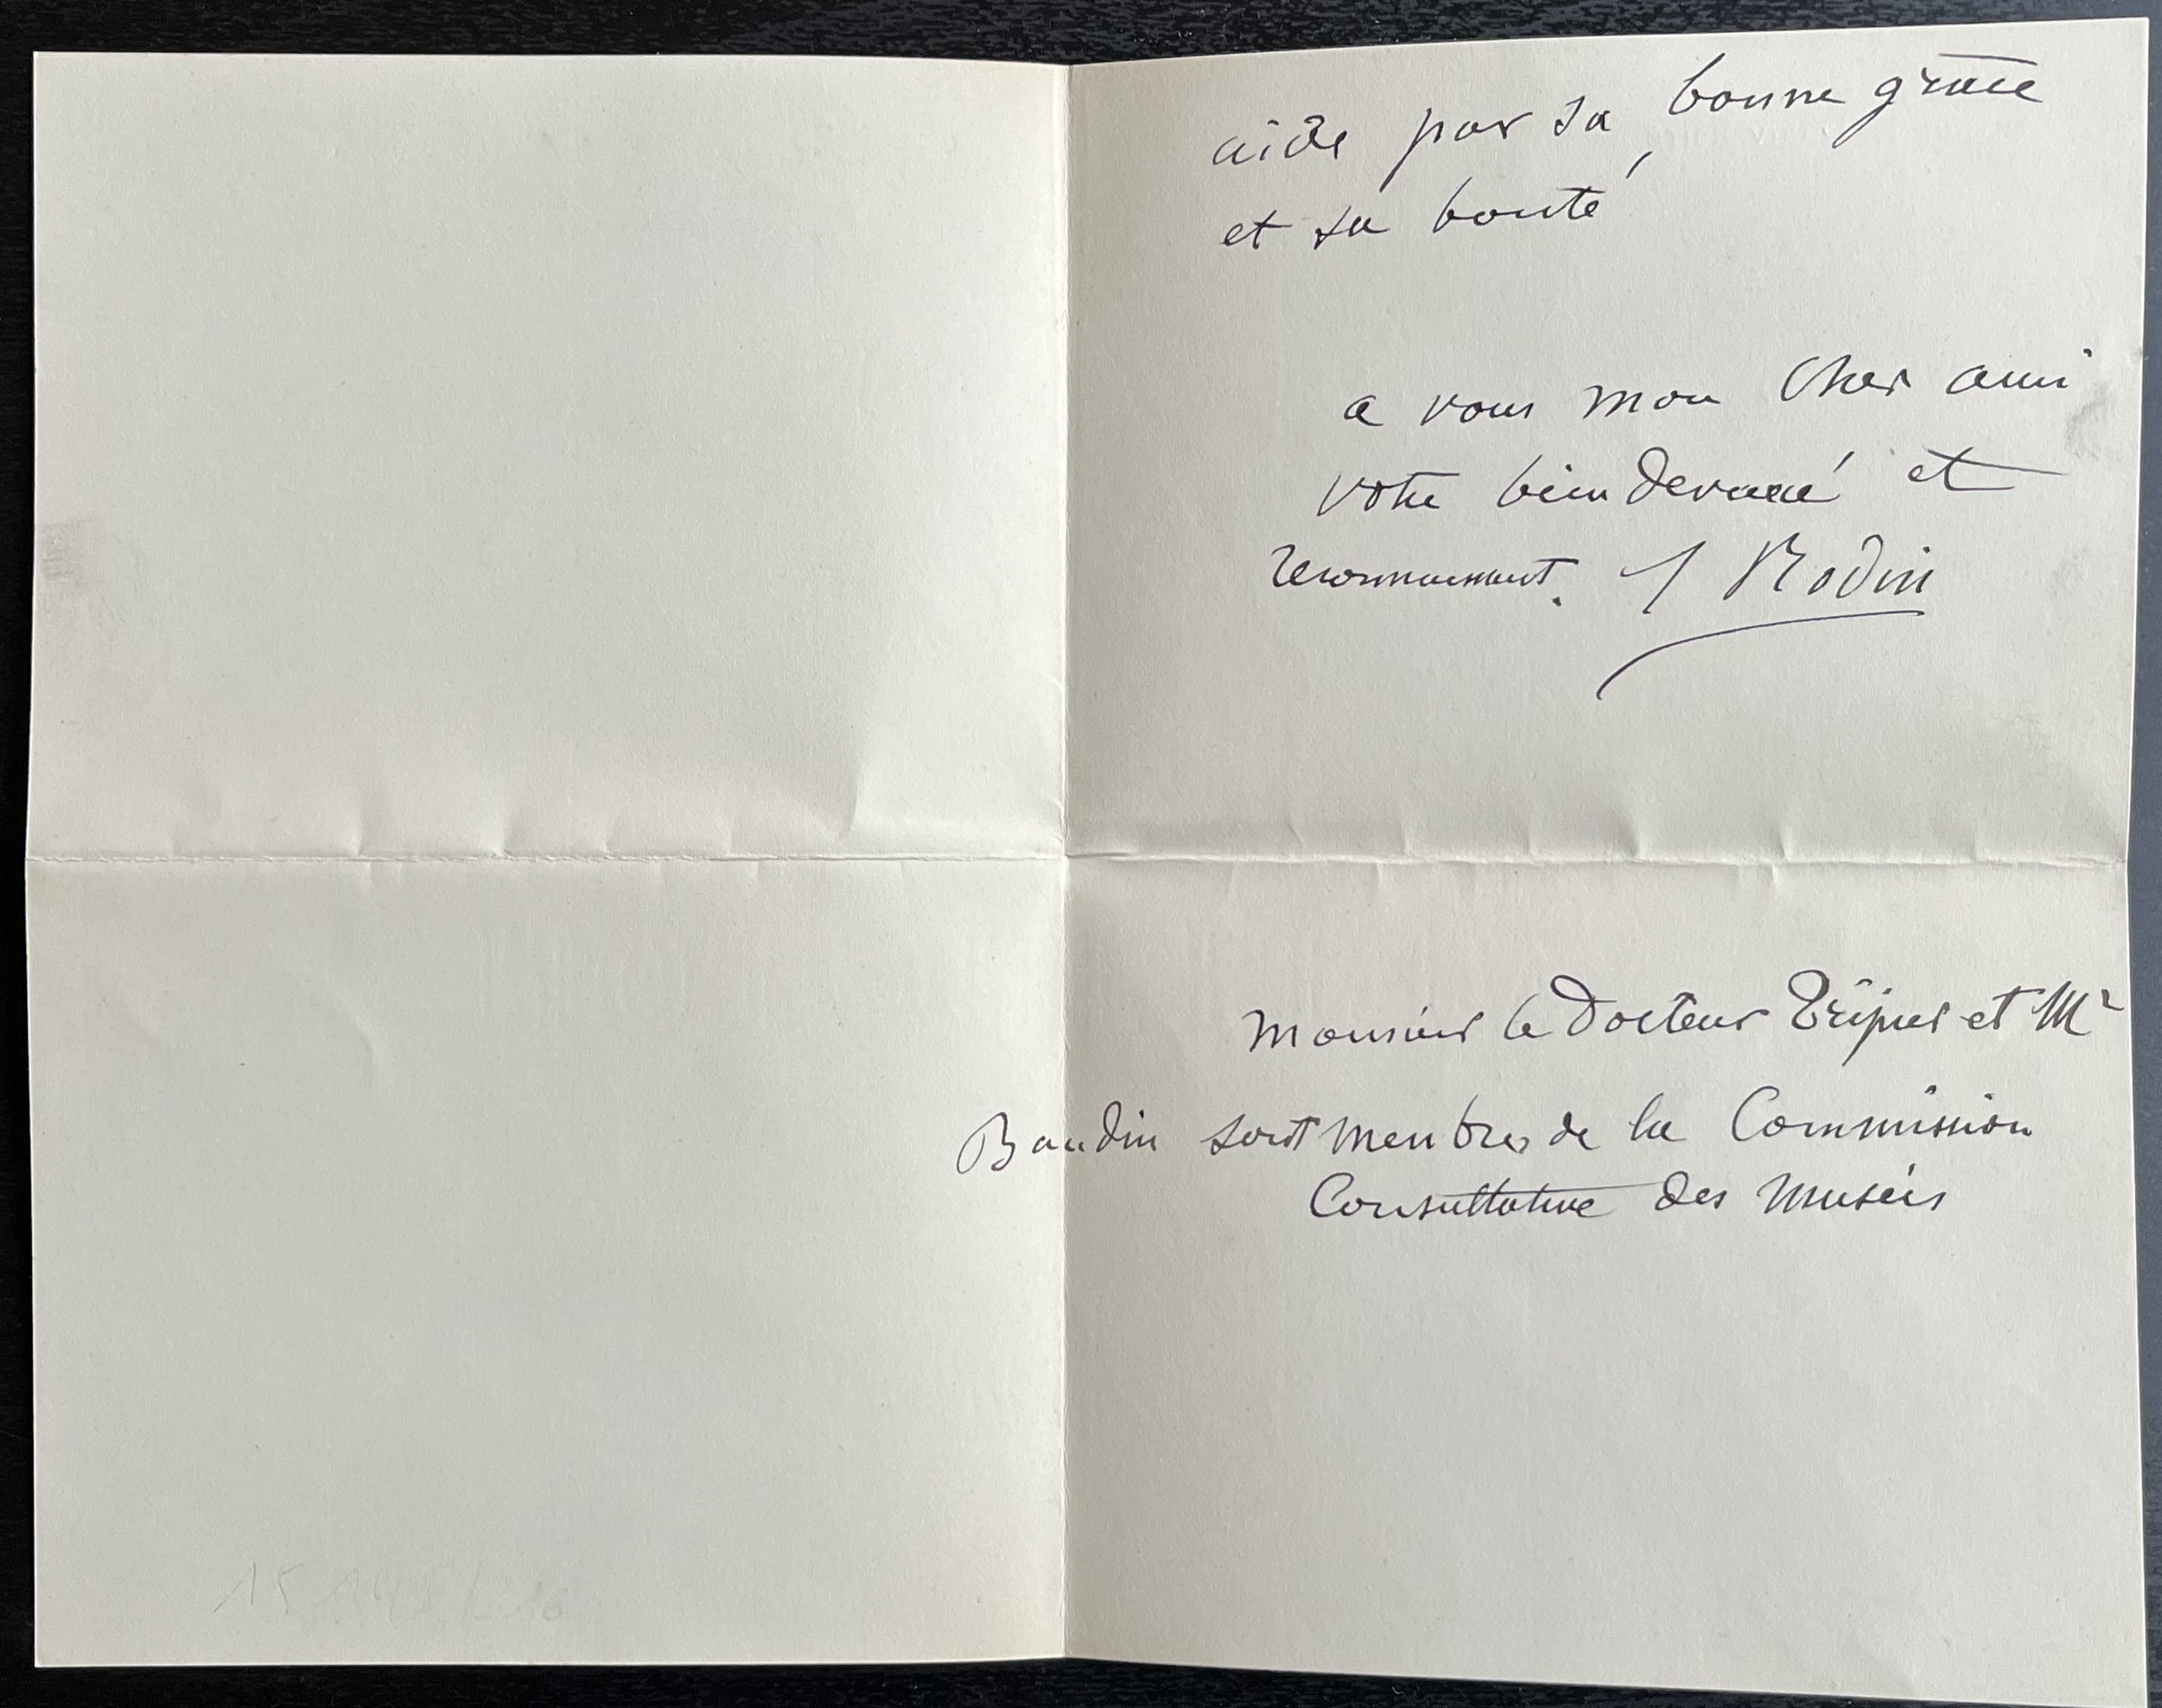 aide par sa bonne grâce
et sa bonté
a vous mon Cher ami
votre bien devoué et
reconnaissant. Rodin
Monsieur le Docteur Tripier et Mr
Baudin sont membres de la Commission
Consultative des Musées